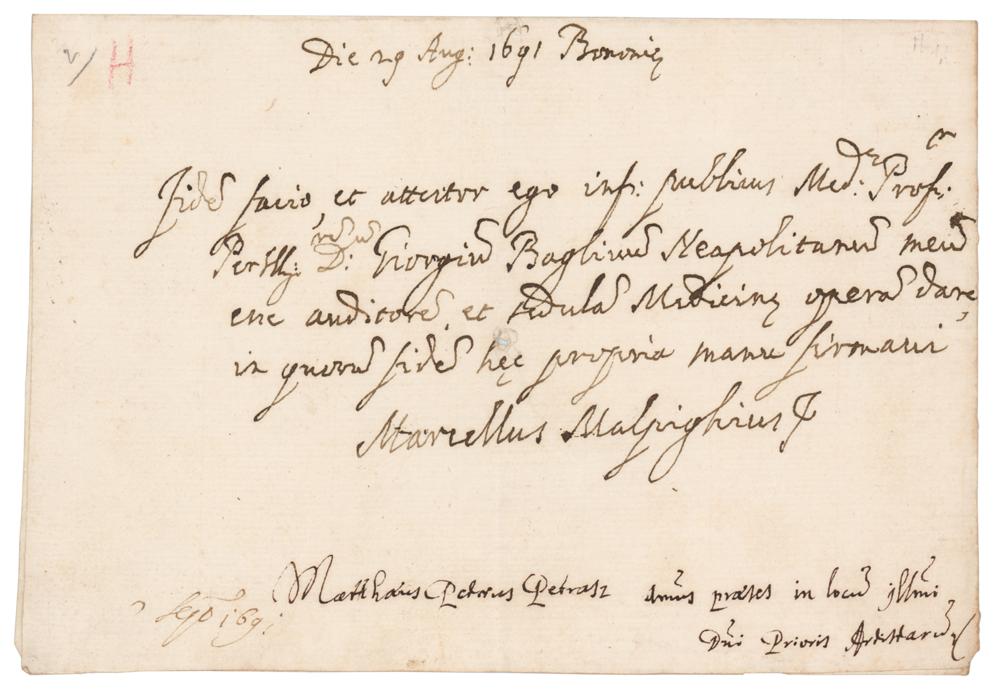 Die 29 Aug: 1691 Bononię
Fidē facio et attestor ego infr: publicus Med: Profr:
Perill: D: Giorgiū Baglivuū Neapolitanū meū
esse auditorē, et sedulā Medicinę operā dare,
in quorū fidē hęc propria manu firmavi
Marcellus Malpighius
Matthæus Petrus præses in locū Illmi
Dni Prioris Artistarū
Sept 1691